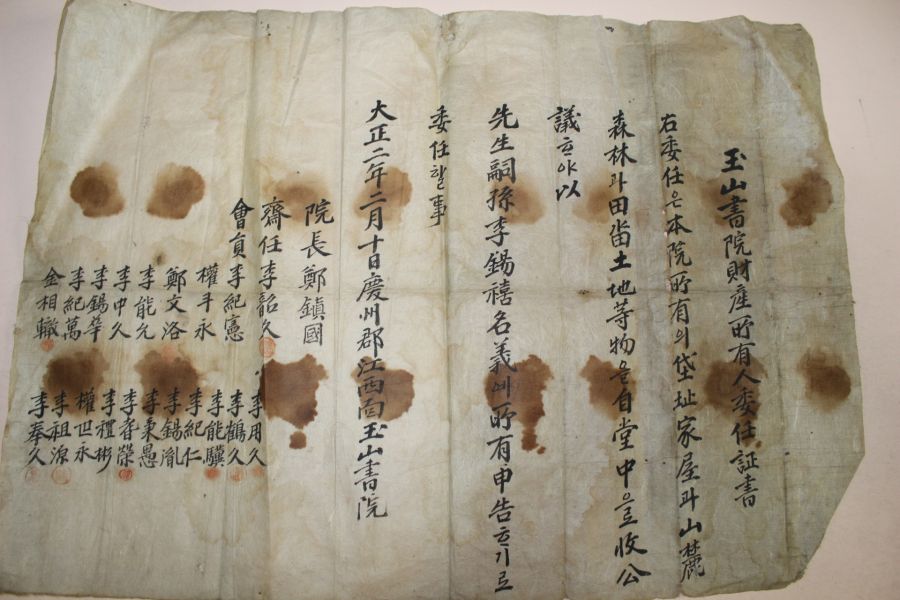 玉山書院財産所有人委任証書
右委任은本院所有의垈址家屋과山麓
森林과田畓土地等物을自堂中으로收公
議ᄒᆞ야以
先生嗣孫李錫禧名義로所有申告ᄒᆞ기로
委任할事
大正二年二月十日慶州郡江西面玉山書院
院長鄭鎭國
齋任李韶久
會員李紀憲
權斗永
鄭文洛
李能允
李中久
李錫華
李紀萬
金相轍
李用久
李鶴久
李紀仁
李能驥
李錫胤
李東愚
李晋榮
李禮彬
權世永
李祖源
李奉久